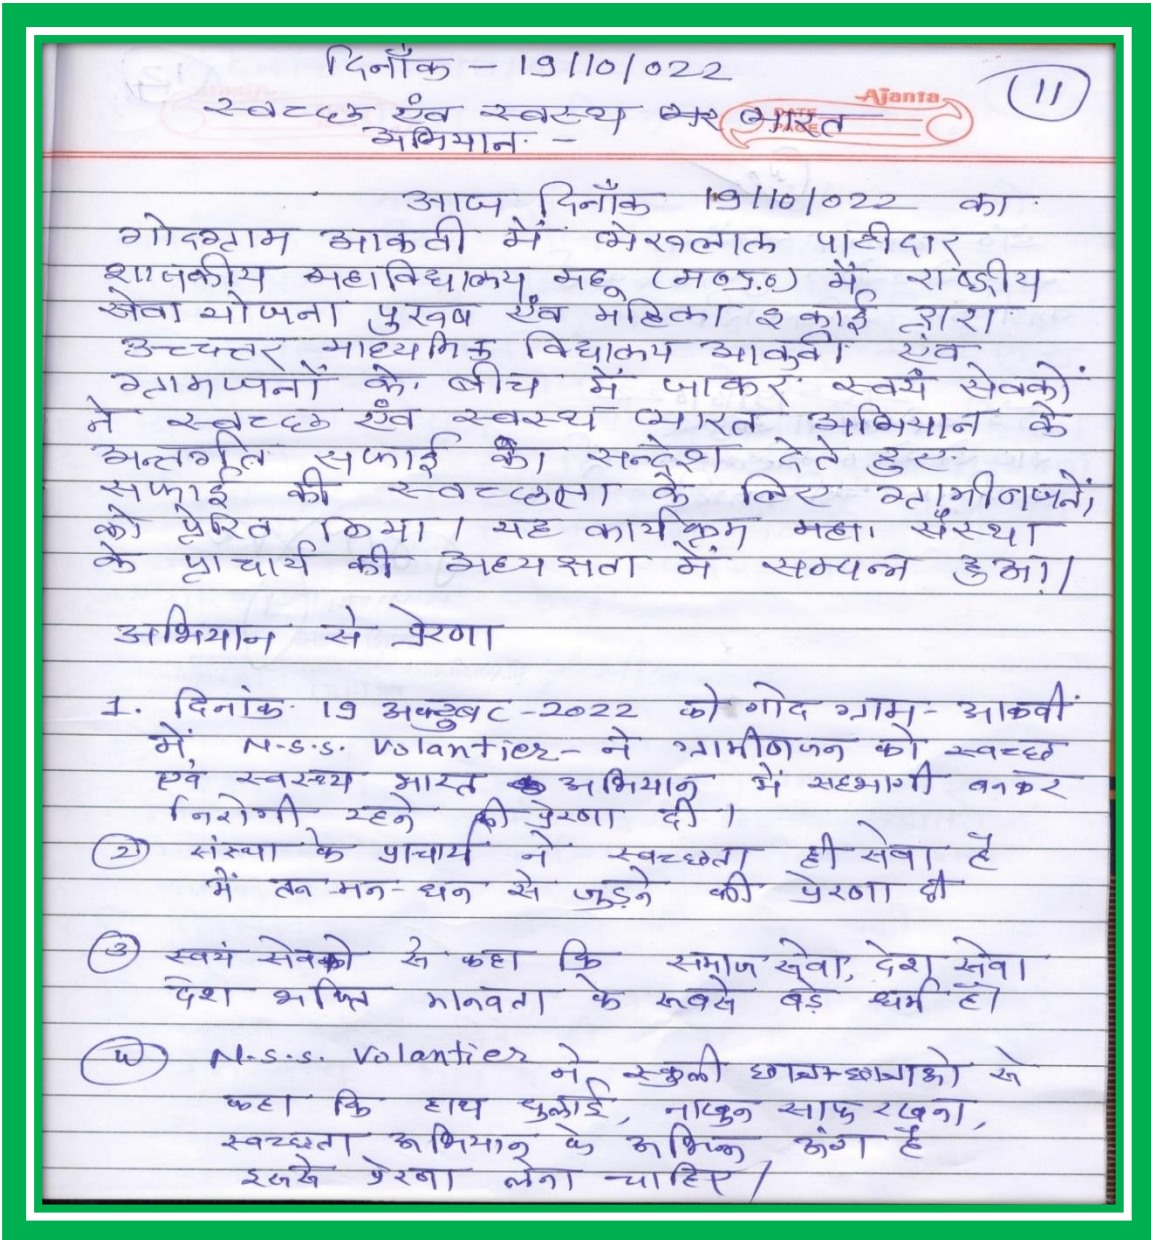 दिनाँक - 19/10/022
11
Ajanta
स्वच्छ एंव स्वस्थ भारत
अभियान -
आज दिनाँक 19/10/022 का
गोदग्राम आकवी में भेरुलाल पाटीदार
शासकीय महाविद्यालय महू (म०प्र०) में राष्ट्रीय
सेवा योजना पुरुष एंव महिला इकाई द्वारा
उच्चत्तर माध्यमिक विद्यालय आकवी एंव
ग्रामजनों के बीच में जाकर स्वयं सेवकों
ने स्वच्छ एंव स्वस्थ भारत अभियान के
अन्तर्गत सफाई का सन्देश देते हुए
सफाई की स्वच्छता के लिए ग्रामीनजनों
को प्रेरित किया। यह कार्यक्रम महा. संस्था
के प्राचार्य की अध्यक्षता में सम्पन्न हुआ।
अभियान से प्रेरणा
1. दिनांक 19 अक्टुबर - 2022 को गोद ग्राम - आकवी
में N.S.S. Volantier - ने ग्रामीणजन को स्वच्छ
एवं स्वस्थ्य भारत अभियान में सहभागी बनकर
निरोगी रहने की प्रेरणा दी।
2) संस्था के प्राचार्य ने स्वच्छता ही सेवा है
में तन-मन-धन से जुड़ने की प्रेरणा दी
3) स्वयं सेवको से कहा कि समाज सेवा, देश सेवा
देश भक्ति मानवता के सबसे बड़े धर्म है।
4) N.S.S. Volantier ने स्कुली छात्र-छात्राओ से
कहा कि हाथ धुलाई, नाखुन साफ रखना,
स्वच्छता अभियान के अभिन्न अंग है
इससे प्रेरणा लेना चाहिए।